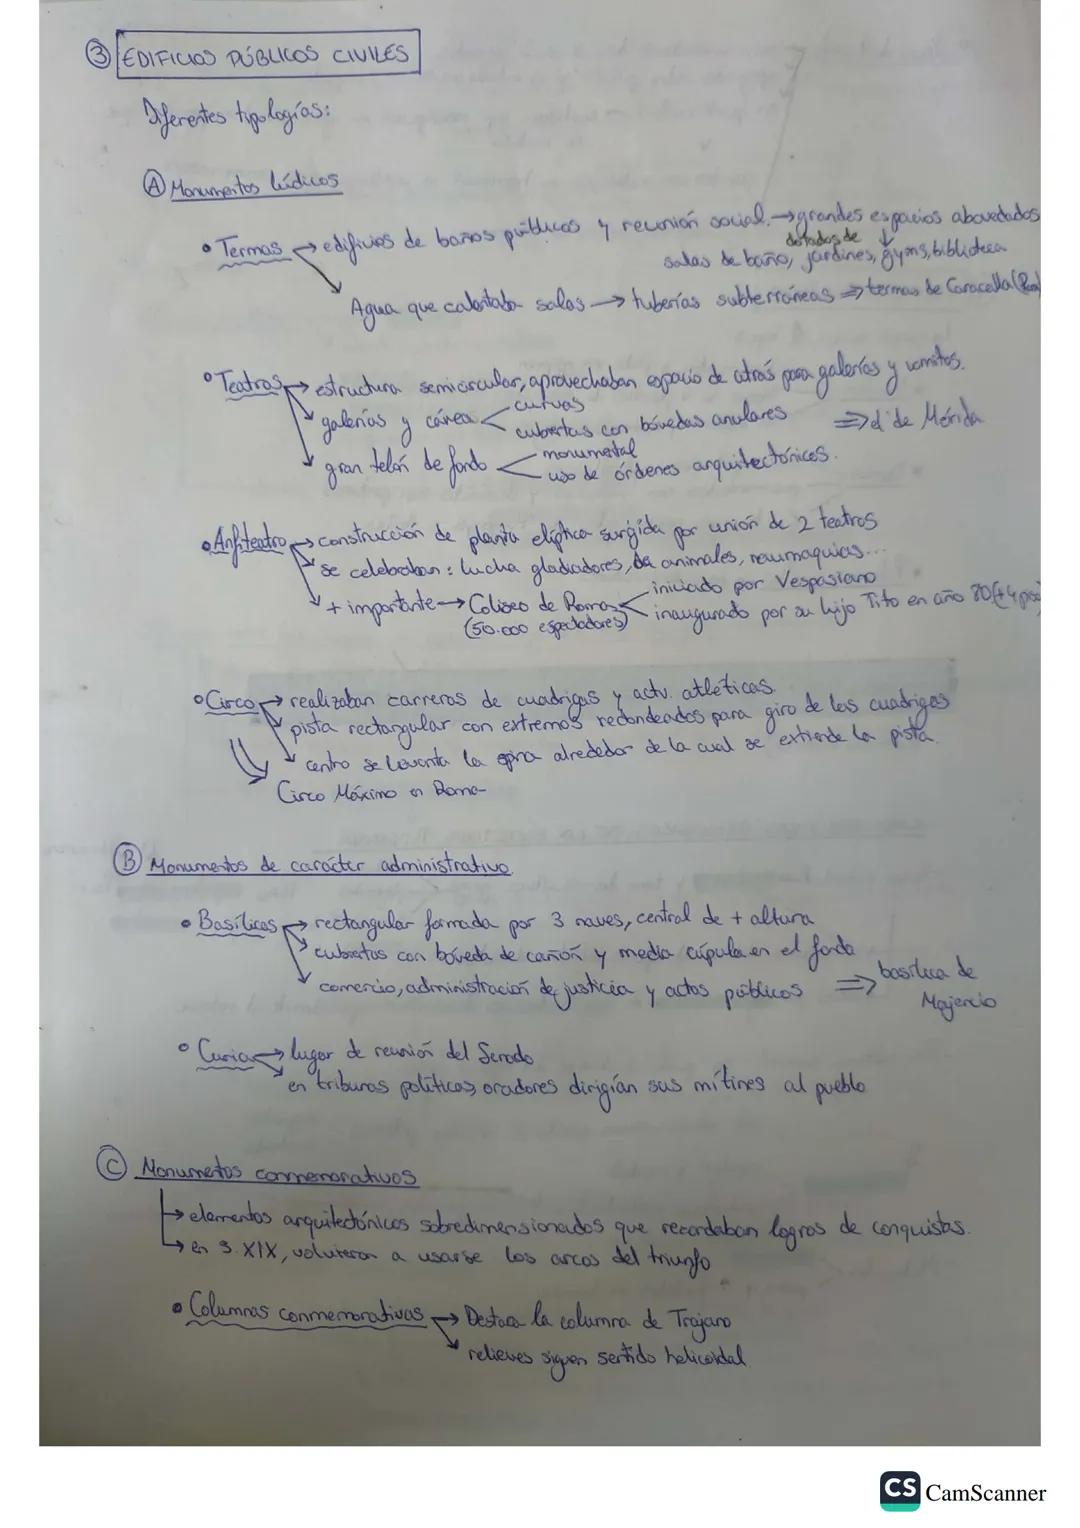 ③ EDIFICIOS PÚBLICOS CIVILES
Diferentes tipologías:
Ⓐ Monumentos lúdicos
• Termas → edificios de baños públicos y reunión social. → grandes espacios abovedados
dotados de ↓
salas de baño, jardines, gyms, biblioteca
Agua que calentaba salas → tuberías subterráneas ⇒ termas de Caracalla
• Teatros → estructura semicircular, aprovechaban espacio de atrás para galerías y vomitos.
galerías y cávea < curvas
cubiertas con bóvedas anulares ⇒ el de Mérida
gran telón de fondo < monumental
uso de órdenes arquitectónicos.
• Anfiteatro → construcción de planta elíptica surgida por unión de 2 teatros
se celebraban: lucha gladiadores, de animales, naumaquias...
+ importante → Coliseo de Roma < iniciado por Vespasiano
(50.000 espectadores) inaugurado por su hijo Tito en año 80 (+4
• Circo → realizaban carreras de cuadrigas y actv. atléticas.
pista rectangular con extremos redondeados para giro de las cuadrigas
centro se levanta la spina alrededor de la cual se extiende la pista.
Circo Máximo en Roma
Ⓑ Monumentos de carácter administrativo.
• Basílicas → rectangular formada por 3 naves, central de + altura
cubiertas con bóveda de cañón y media cúpula en el fondo
comercio, administración de justicia y actos públicos ⇒ basílica de
Majencio
• Curia → lugar de reunión del Senado
en tribunas políticas, oradores dirigían sus mítines al pueblo
Ⓒ Monumentos conmemorativos
→ elementos arquitectónicos sobredimensionados que recordaban logros de conquistas.
→ en S. XIX, volvieron a usarse los arcos del triunfo
• Columnas conmemorativas → Destaca la columna de Trajano
relieves siguen sentido helicoidal
CS CamScanner